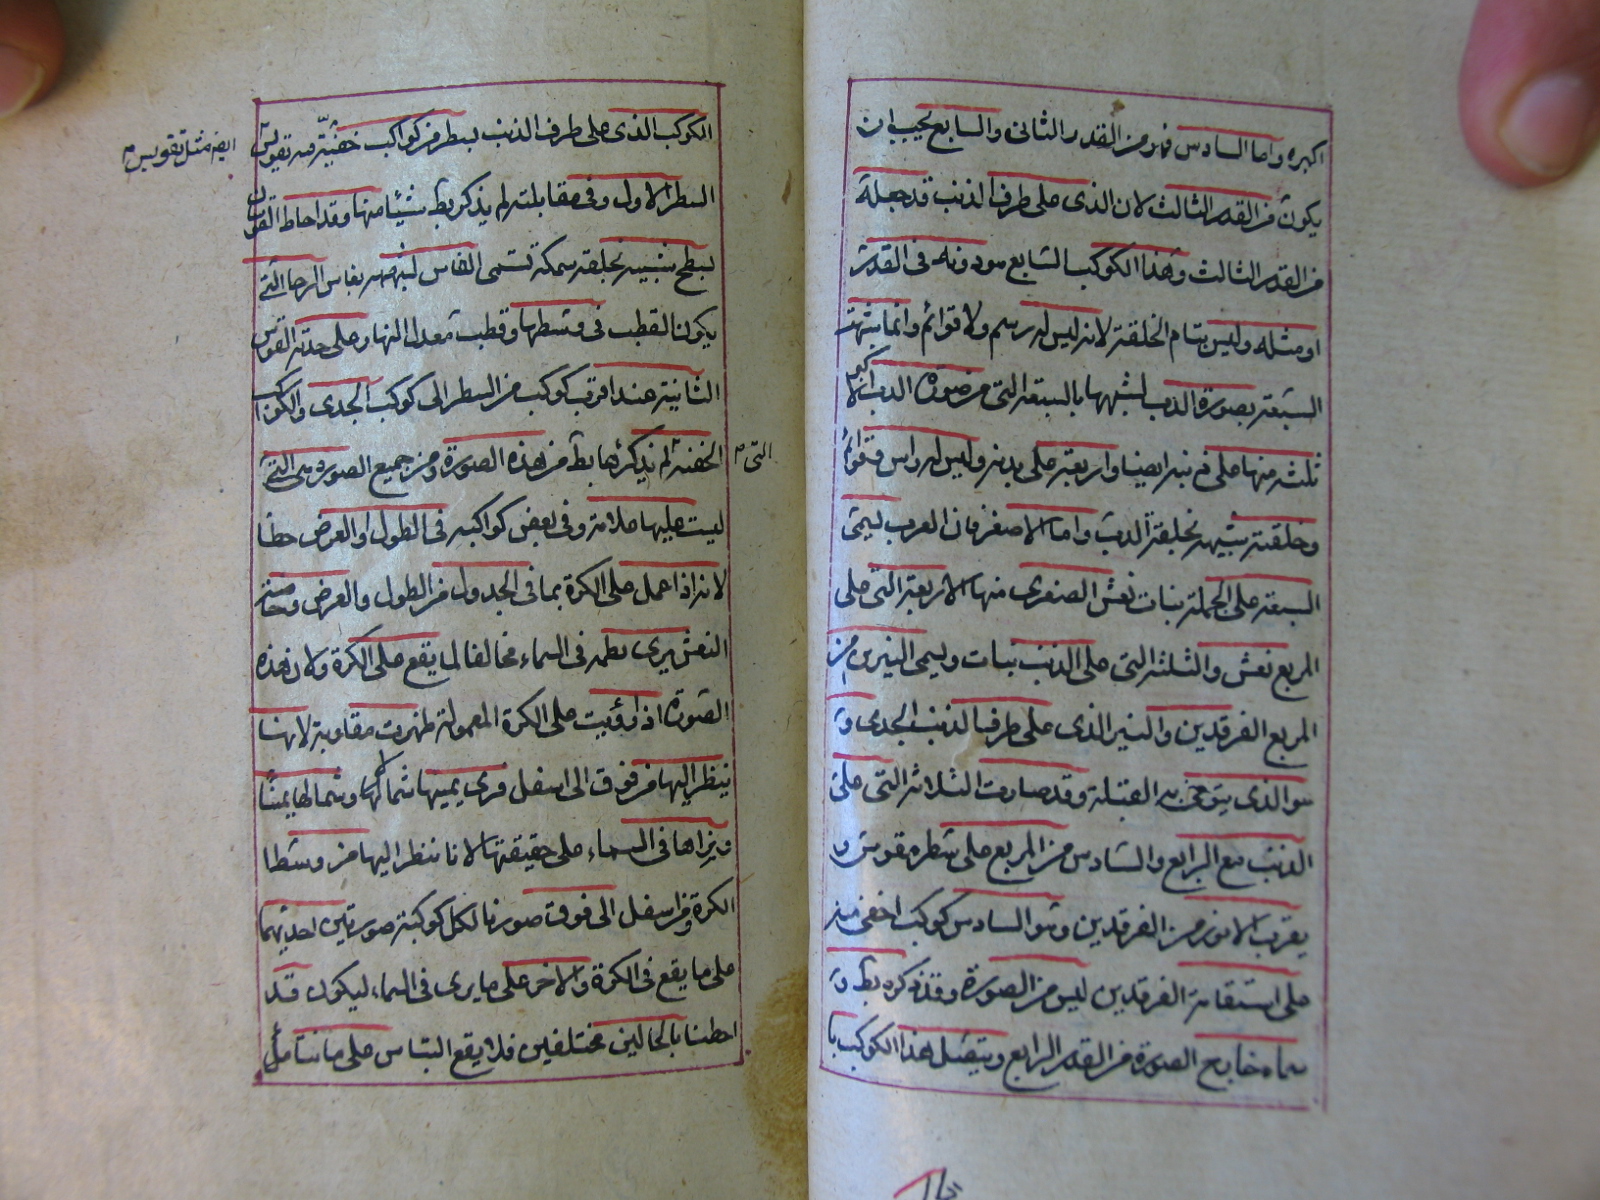 اكبره واما السادس فهو من القدر الثانى والسابع يجب ان
يكون من القدر الثالث لان الذى على طرف الذنب قد جعله
من القدر الثالث وهذا الكوكب السابع هو دونه فى القدر
او مثله وليس بتام الخلقة لانه ليس له رسم ولا قوائم وانما شبهت
السبعة بصورة الدب لشبهها بالسبعة التى من صورة الدب الاكبر
ثلثة منها على ذنبه ايضا واربعة على بدنه وليس له راس وقوائم
وخلقته شبيهه بخلقة الدب واما الاصغر فان العرب تسمى
السبعة على الجملة بنات نعش الصغرى منها الاربعة التى على
المربع نعش والثلثة التى على الذنب بنات ويسمى النيرين من
المربع الفرقدين والنير الذى على طرف الذنب الجدى و
هو الذى يتوخى به القبلة وقد صارت الثلاثة التى على
الذنب مع الرابع والسادس من المربع على سطر مقوس و
بقرب الانور من الفرقدين وهو السادس كوكب اخفى منه
على استقامة الفرقدين ليس من الصورة وقد ذكره بط و
سماه خارج الصورة من القدر الرابع ويتصل هذا الكوكب با
الكوكب الذى على طرف الذنب بسطر من كواكب خفية فيه تقويس
السطر الاول وفى مقابلته لم يذكر بط شيئا منها وقد احاط القوسان
بسطح شبيه بخلقة سمكة تسمى الفاس لشبهه بفاس الرحا التى
يكون القطب فى وسطها وقطب معدل النهار على حدبة القوس
الثانية عند اقرب كوكب من السطر الى كوكب الجدى والكواكب
الخفية لم يذكرها بط من هذه الصورة ومن جميع الصور هى التى
ليست عليها علامة وفى بعض كواكبه فى الطول والعرض خطا
لانه اذا عمل على الكرة بما فى الجدول من الطول والعرض وخاصة
النعش يرى بظهر فى السماء مخالفا لما يقع على الكرة ولان هذه
الصورة اذا رؤيت على الكرة المعمولة ظهرت مقلوبة لانها
ينظر اليها من فوق الى اسفل فيرى يمينها شمالها وشمالها يمينا
ويراها فى السماء على حقيقتها لانا ننظر اليها من وسط
الكرة ومن اسفل الى فوق صورنا لكل كوكبة صورتين احديهما
على ما يقع فى الكرة والاخر على ما يرى فى السماء ليكون قد
احطنا بالحالين مختلفين فلا يقع التباس على ما نتامل
ايضا مثل تقويس
التى